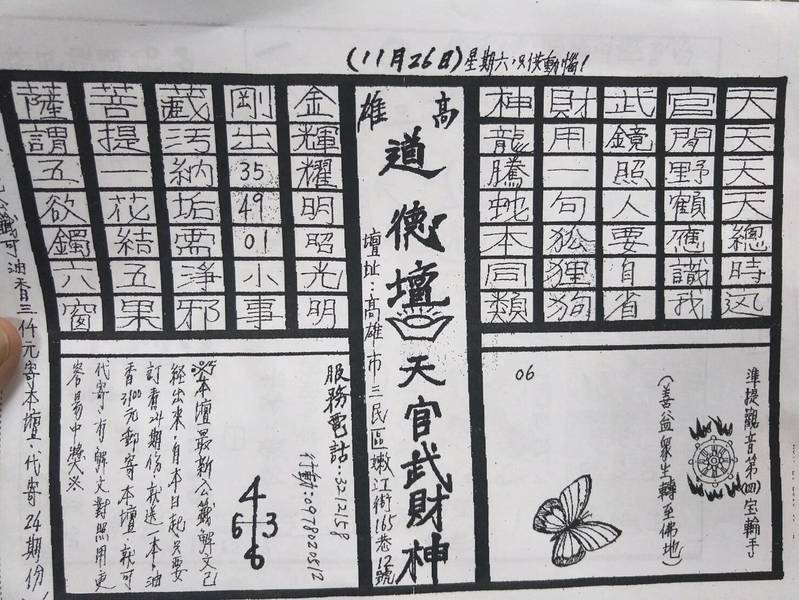 (11月26日)星期六,只供動惱!
天天天天總時
官閒野顧應識我
武鏡照人要自省
財用一句狐狸狗
神龍騰蛇本同類
準提觀音第(四)宝輪手
(善益眾生轉至佛地)
06
高雄
道德壇 天官武財神
壇址:高雄市三民區嫩江街165巷12號
金輝耀明昭光明
剛出354901小事
藏污納垢需淨邪
菩提一花結五果
薩謂五欲鐲六窗
服務電話:3212158
行動:0978020512
※本壇最新公籤解文已
經出來,自本日起只要
訂香24期份,就送一本,油
香2100元郵寄本壇,就可
代寄,有解文對照用更
容易中獎※
4
6 3
6
公籤可油香三仟元寄本壇.代寄24期份